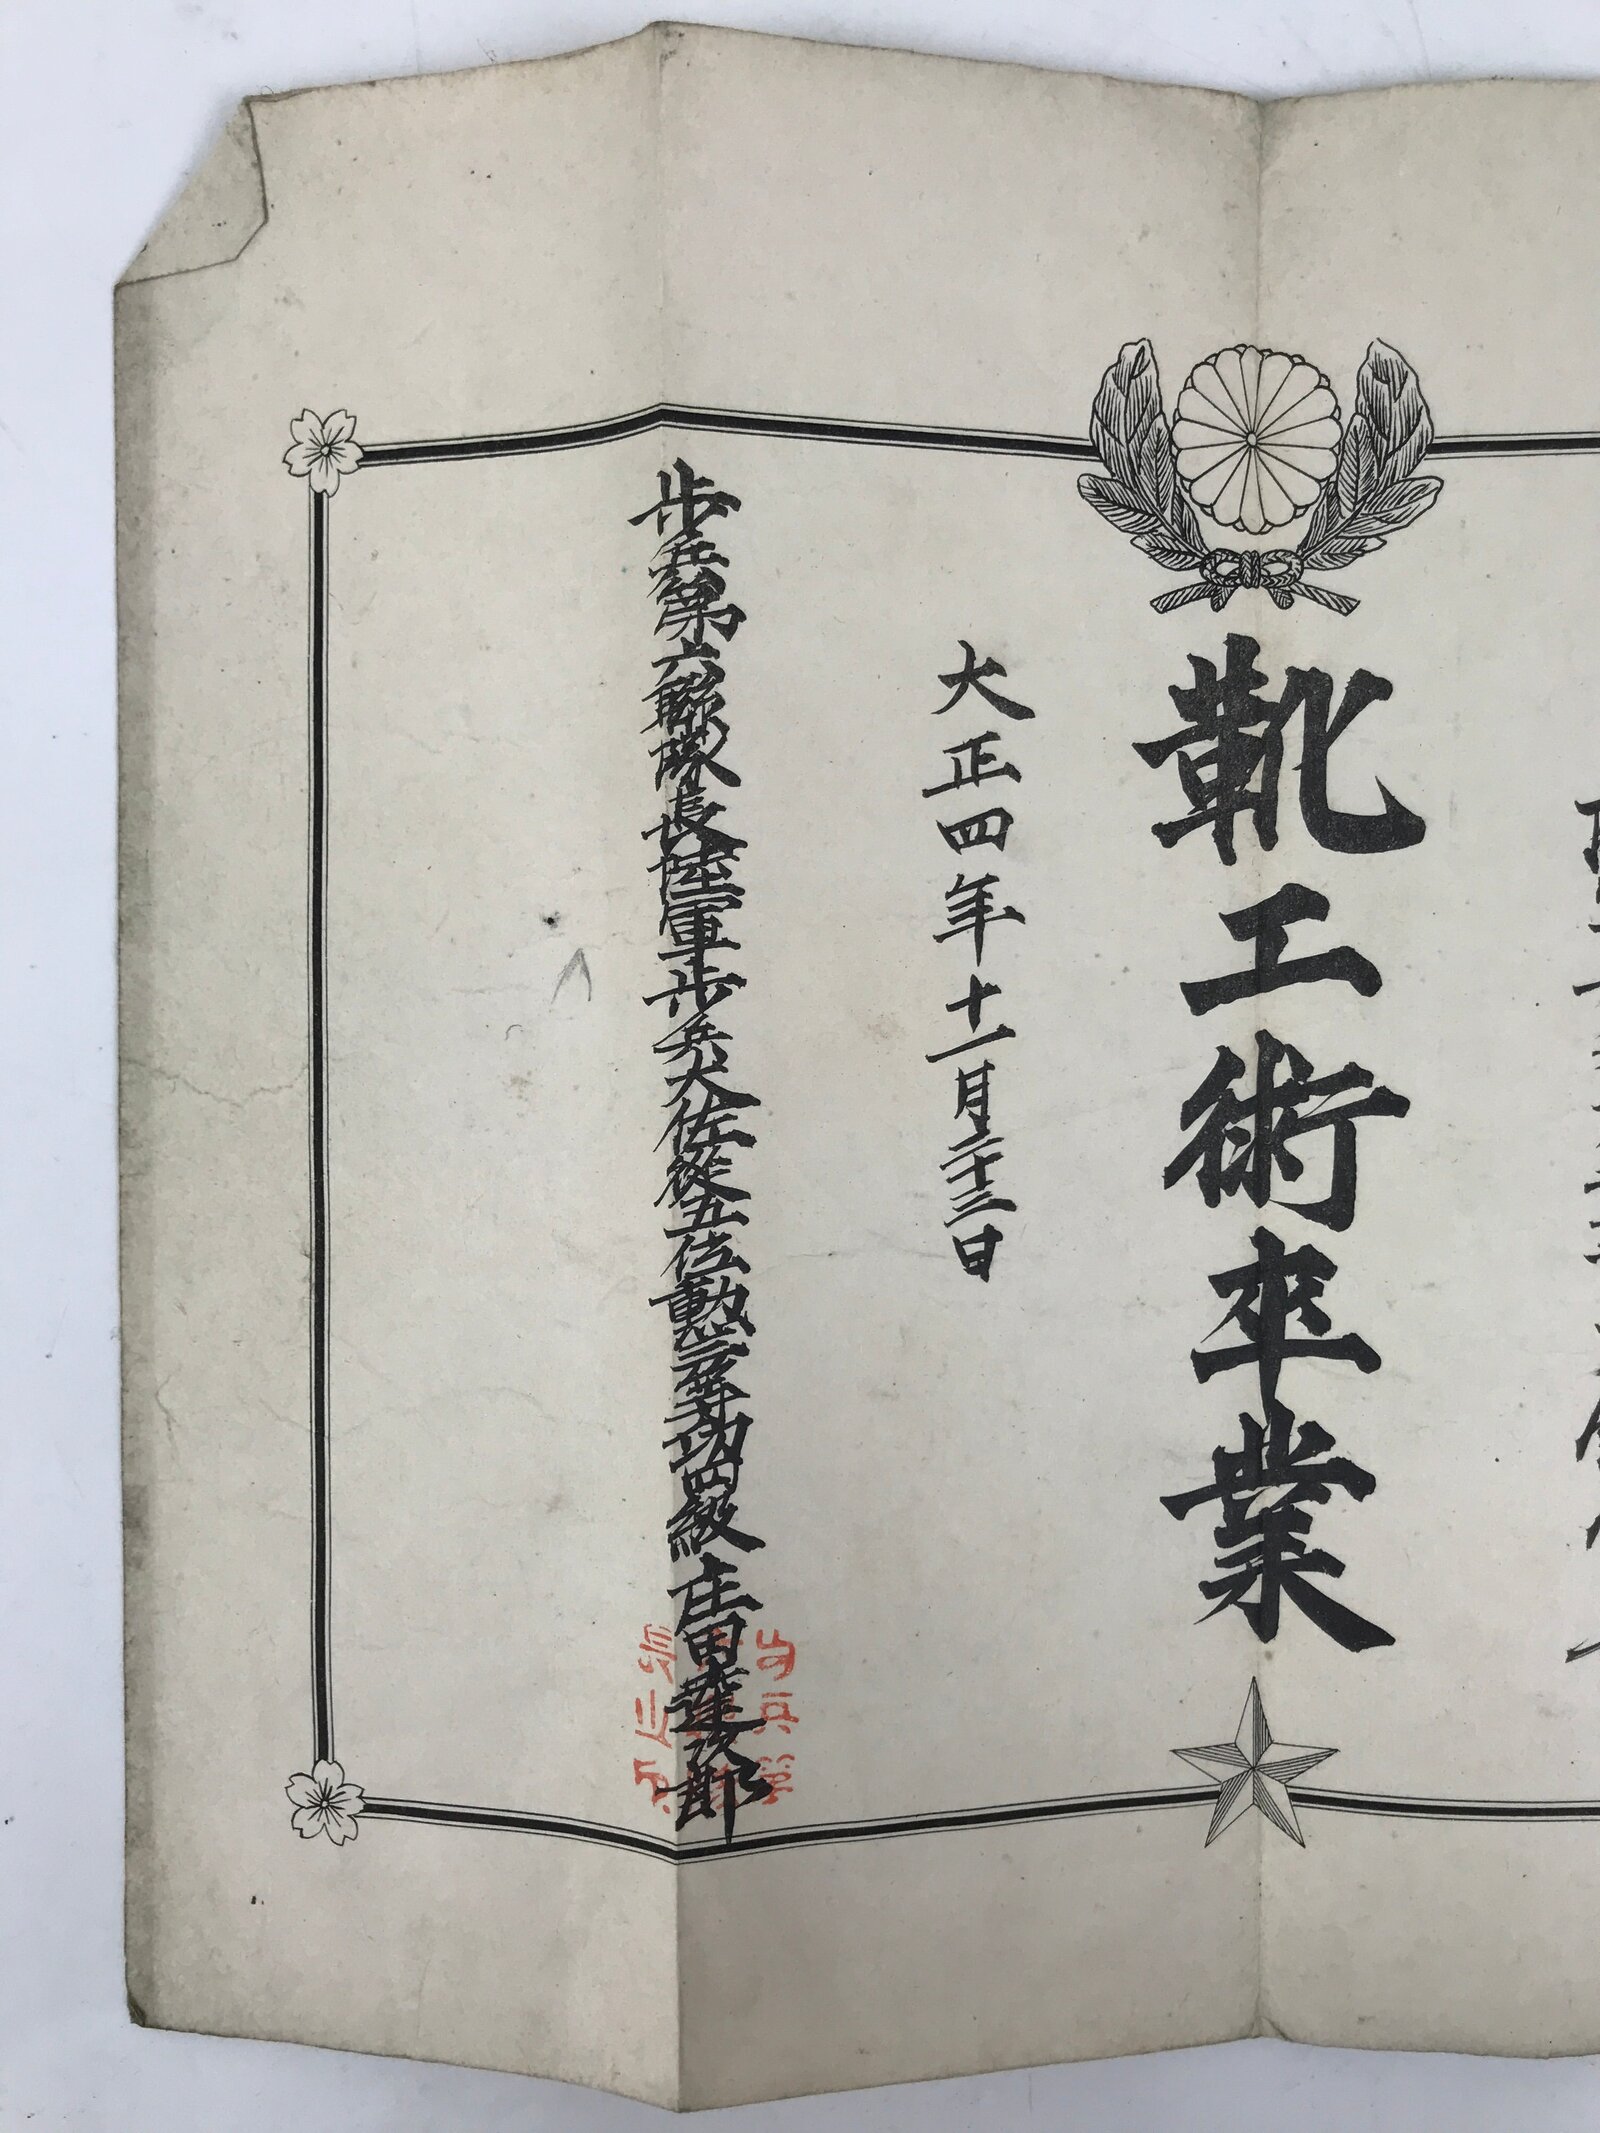 靴工術卒業
大正四年十一月二十三日
歩兵第六聯隊長陸軍歩兵大佐從五位勲三等功四級庄田達次郎